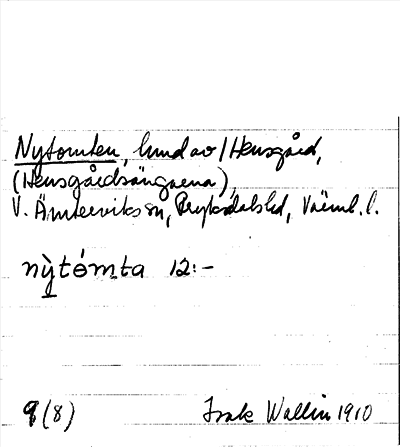 Nytomten, hmd av/Hensgård,
(Hensgårdsängarna),
V. Ämterviks sn, Fryksdals hd, Värml. l.
nỳtómta 12:-
9(8) Isak Wallin 1910